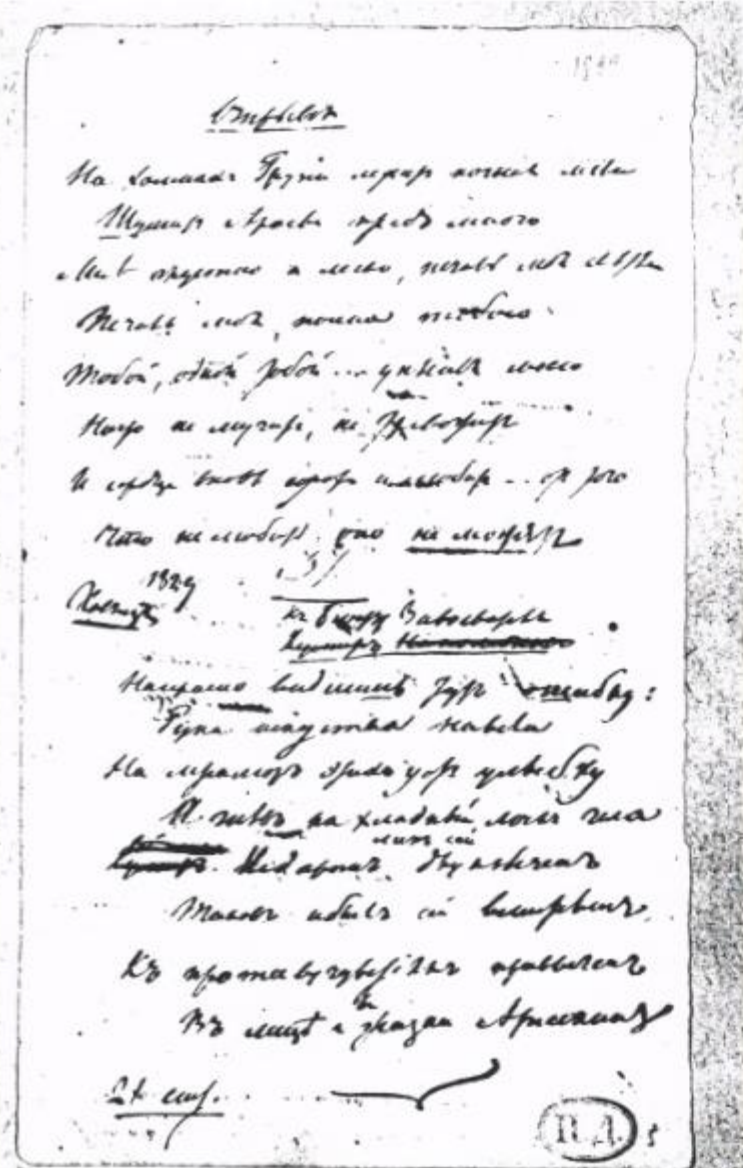 Отрывокъ
На холмахъ Грузіи лежитъ ночная мгла
Шумитъ Арагва предо мною
Мнѣ грустно и легко, печаль моя свѣтла
Печаль моя полна тобою
Тобой, одной тобой... унынья моего
Ничто не мучитъ, не тревожитъ
И сердце вновь горитъ и любитъ... отъ того
Что не любить оно не можетъ
1829
Къ бюсту Завоевателя
Кумиръ Наполеона
Напрасно видишь тутъ ошибку:
Рука искуства навела
На мраморъ этихъ устъ улыбку
А гнѣвъ на хладный лоскъ чела
ликъ сей
Недаромъ двуязыченъ
Таковъ и былъ сей властелинъ
Къ противучувствіямъ привыченъ
Въ лицѣ и въ жизни Арлекинъ
П.Д. 5